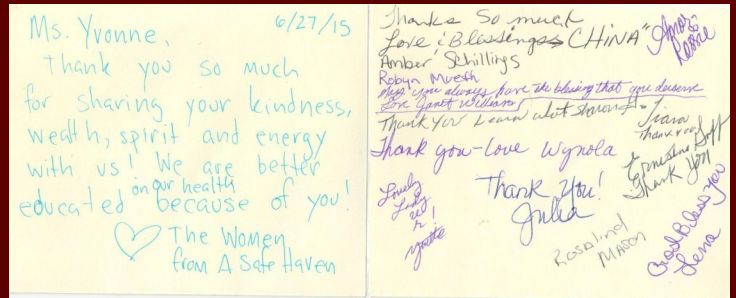 6/27/15
Ms. Yvonne,
Thank you so much
for sharing your kindness,
wealth, spirit and energy
with us! We are better
on our health
educated because of you!
♡ The Women
from A Safe Haven
Thanks So much
Love & Blessings "CHINA"
Amber Schillings
Robyn Mueth
May you always have the blessing that you deserve
Love Janet William
Thank you Learn a lot
Tiara
Thank you
Thank you - Love Wynola
Ernestine Goff
Thank You
Lovely
Lady
Thank You!
Julia
Rosalind
Mason
God Bless you
Lena